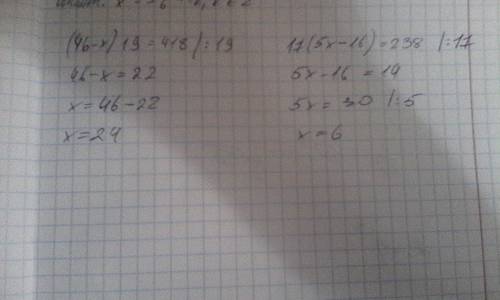 (46-x) 19 = 418 |:19
46-x = 22
x = 46-22
x = 24
17 (5x-16) = 238 |:17
5x-16 = 14
5x = 30 |:5
x = 6